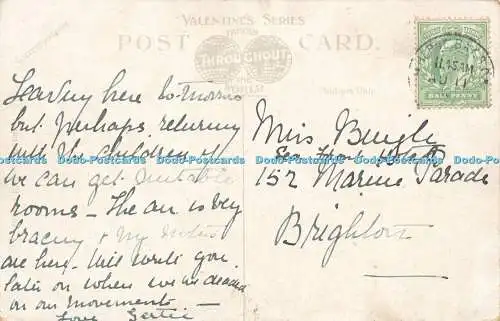 VALENTINE'S SERIES
FAMOUS
POST CARD.
THROUGHOUT
THE
WORLD
HALFPENNY
11.45 AM
Leaving here to-morrow
but perhaps returning
with the children if
we can get suitable
rooms – The air is very
bracing & my
are here. Will write you
later on when we've decided
on our movements –
Love Gertie
Miss
152 Marine Parade
Brighton
Dodo-Postcards Dodo-Postcards Dodo-Postcards Dodo-Postcards Dodo-Postcards